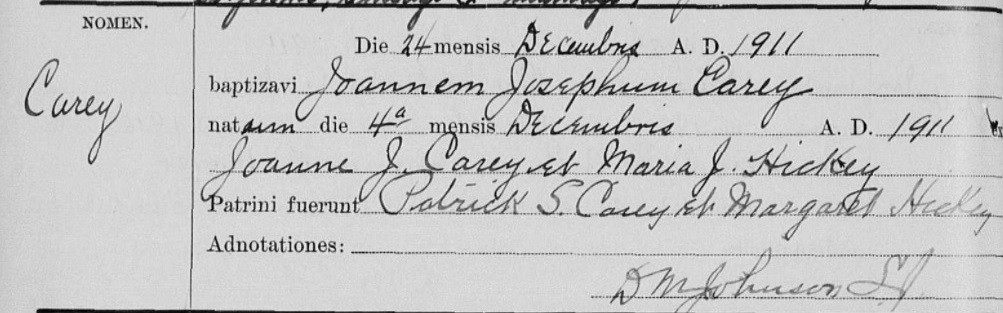 NOMEN.
Die 24 mensis Decembris A. D. 1911
Carey
baptizavi Joannem Josephum Carey
natum die 4a mensis Decembris A. D. 1911
Joanne J. Carey et Maria J. Hickey
Patrini fuerunt Patrick S. Carey et Margaret Hickey
Adnotationes:
D M Johnson S.J